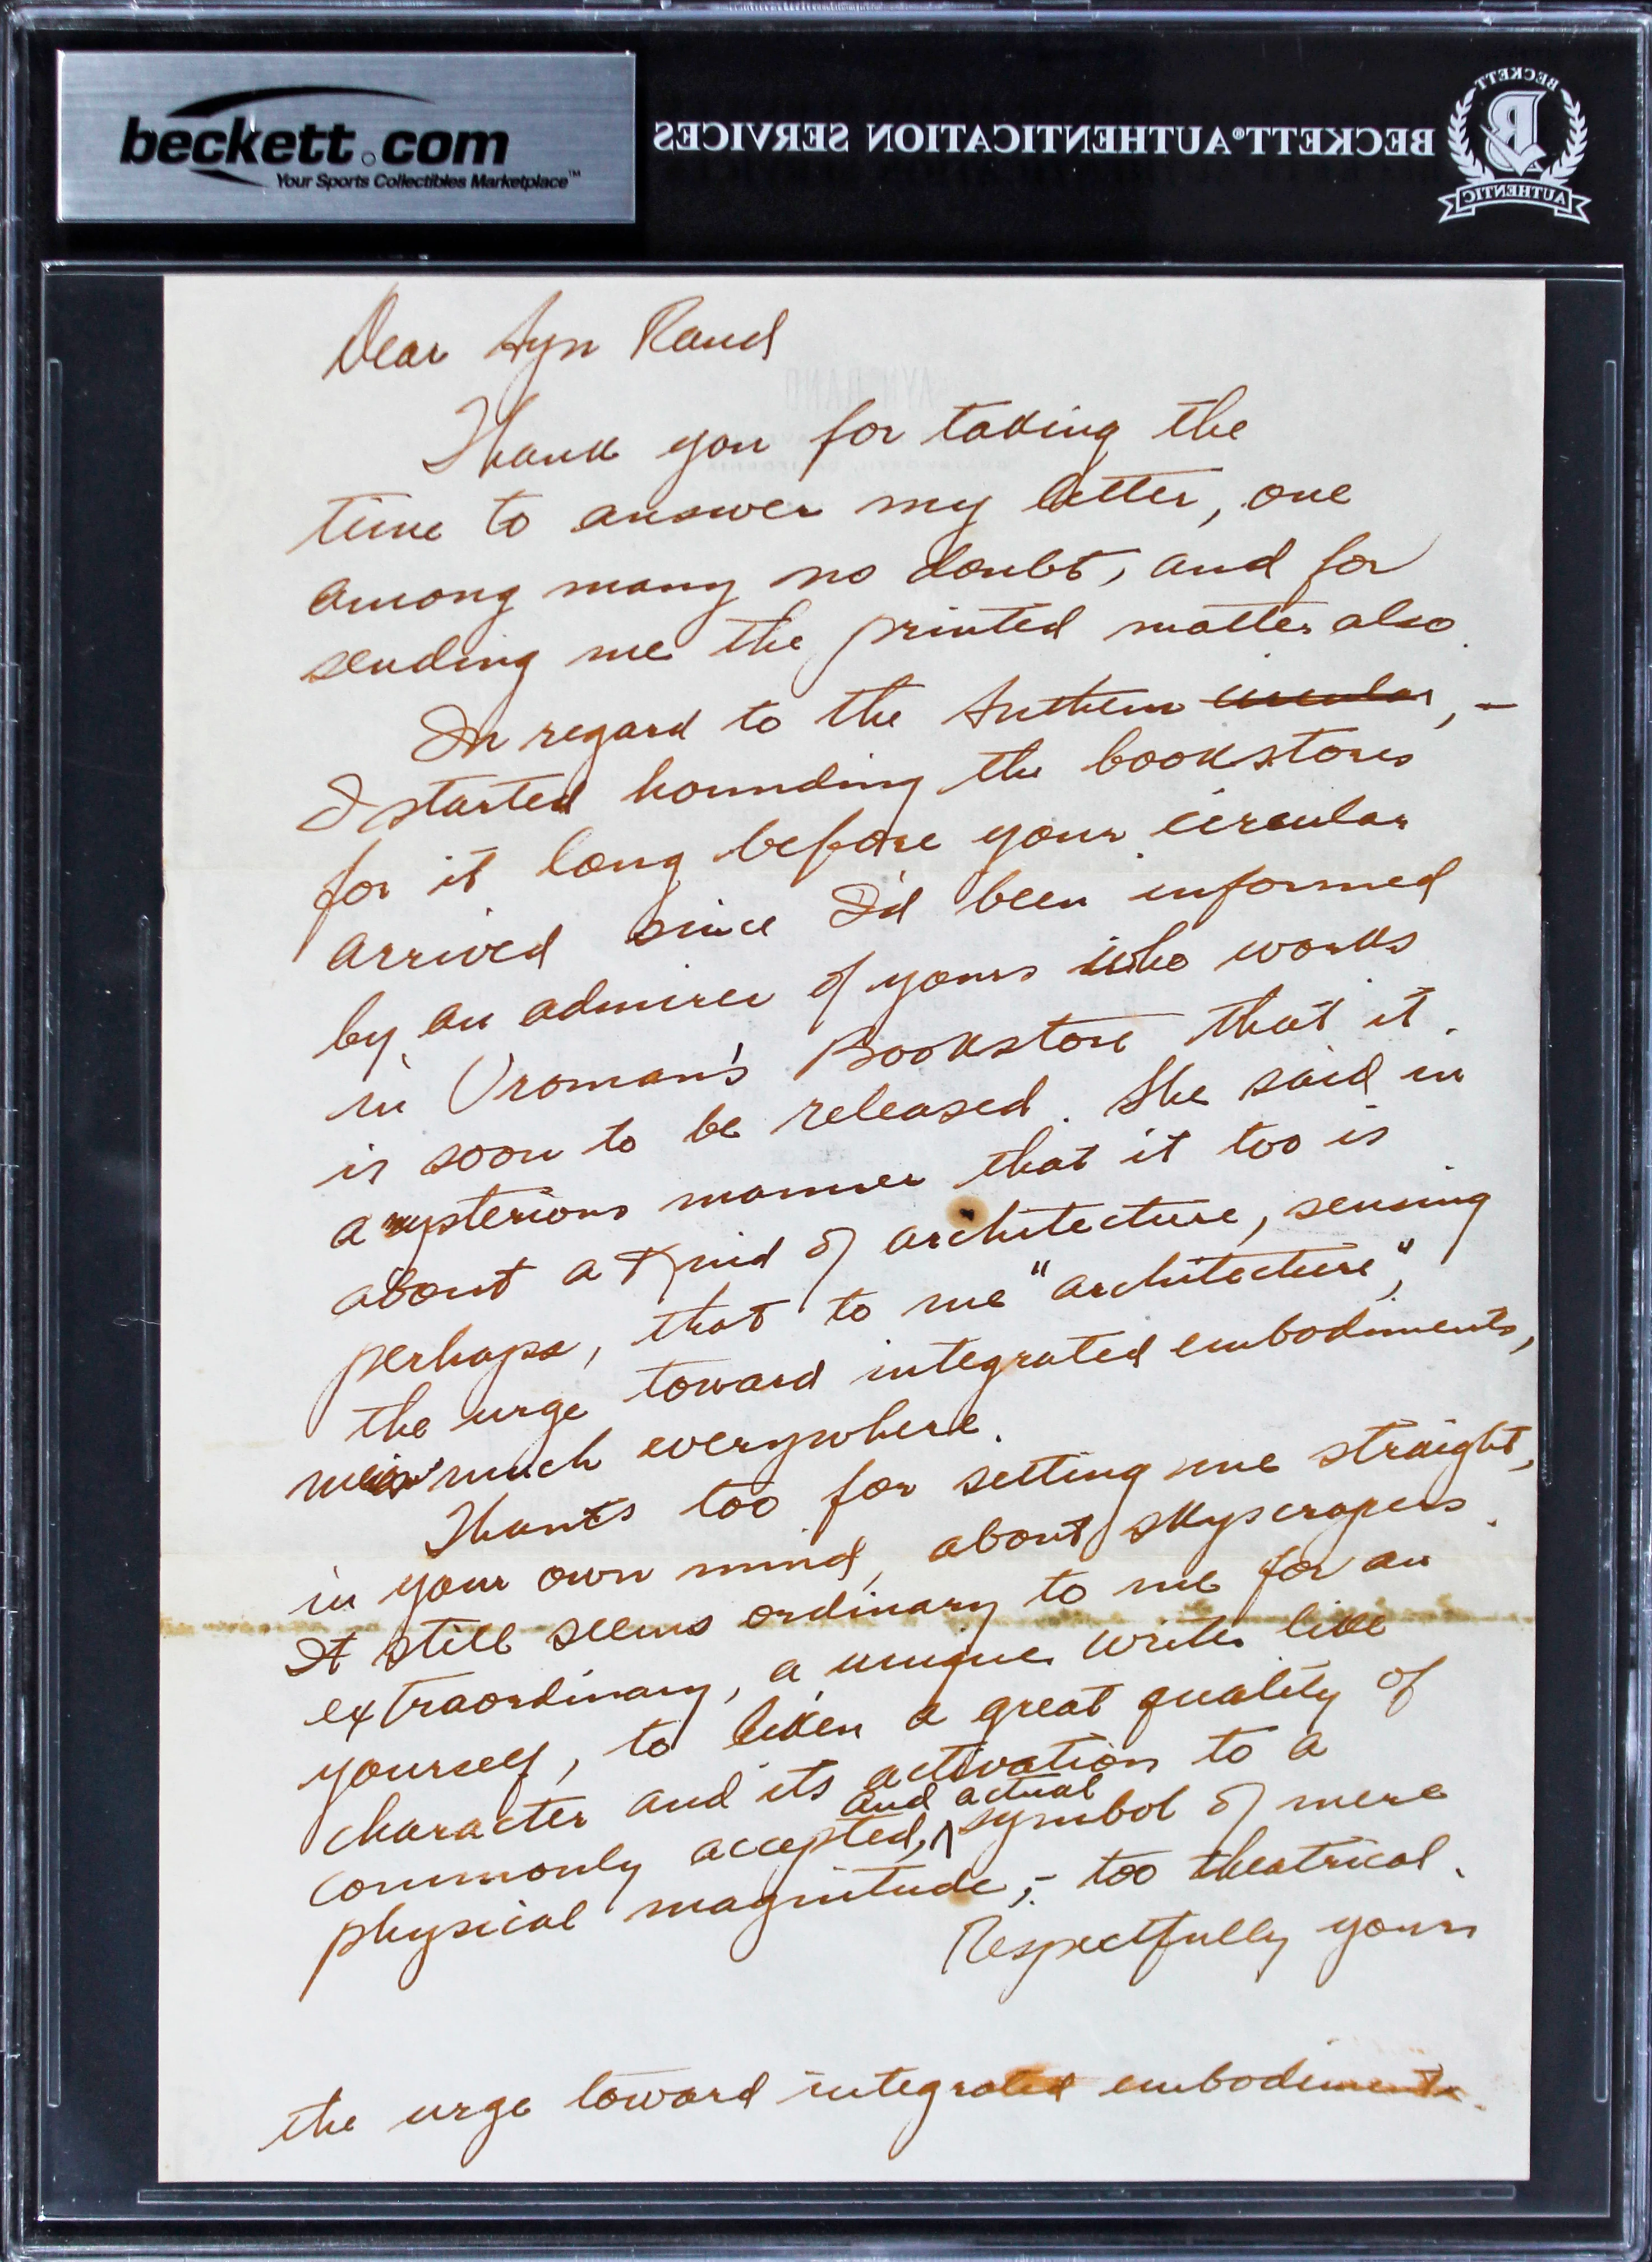 beckett.com
Your Sports Collectibles Marketplace™
BECKETT® AUTHENTICATION SERVICES
BECKETT
B
AUTHENTIC
Dear Ayn Rand
AYN RAND
Thank you for taking the
time to answer my letter, one
among many no doubt, and for
sending me the printed matter also.
In regard to the Anthem circular, –
I started hounding the bookstores
for it long before your circular
arrived since I'd been informed
by an admirer of yours who works
in Vroman's Bookstore that it
is soon to be released. She said in
a mysterious manner that it too is
about a kind of architecture, sensing
perhaps, that to me "architecture",
the urge toward integrated embodiments,
much everywhere.
Thanks too for setting me straight,
in your own mind, about skyscrapers.
It still seems ordinary to me for an
extraordinary, a unique writer like
yourself, to liken a great quality of
character and its activation to a
commonly accepted, and actual symbol of mere
physical magnitude, – too theatrical.
Respectfully yours
the urge toward integrated embodiments.